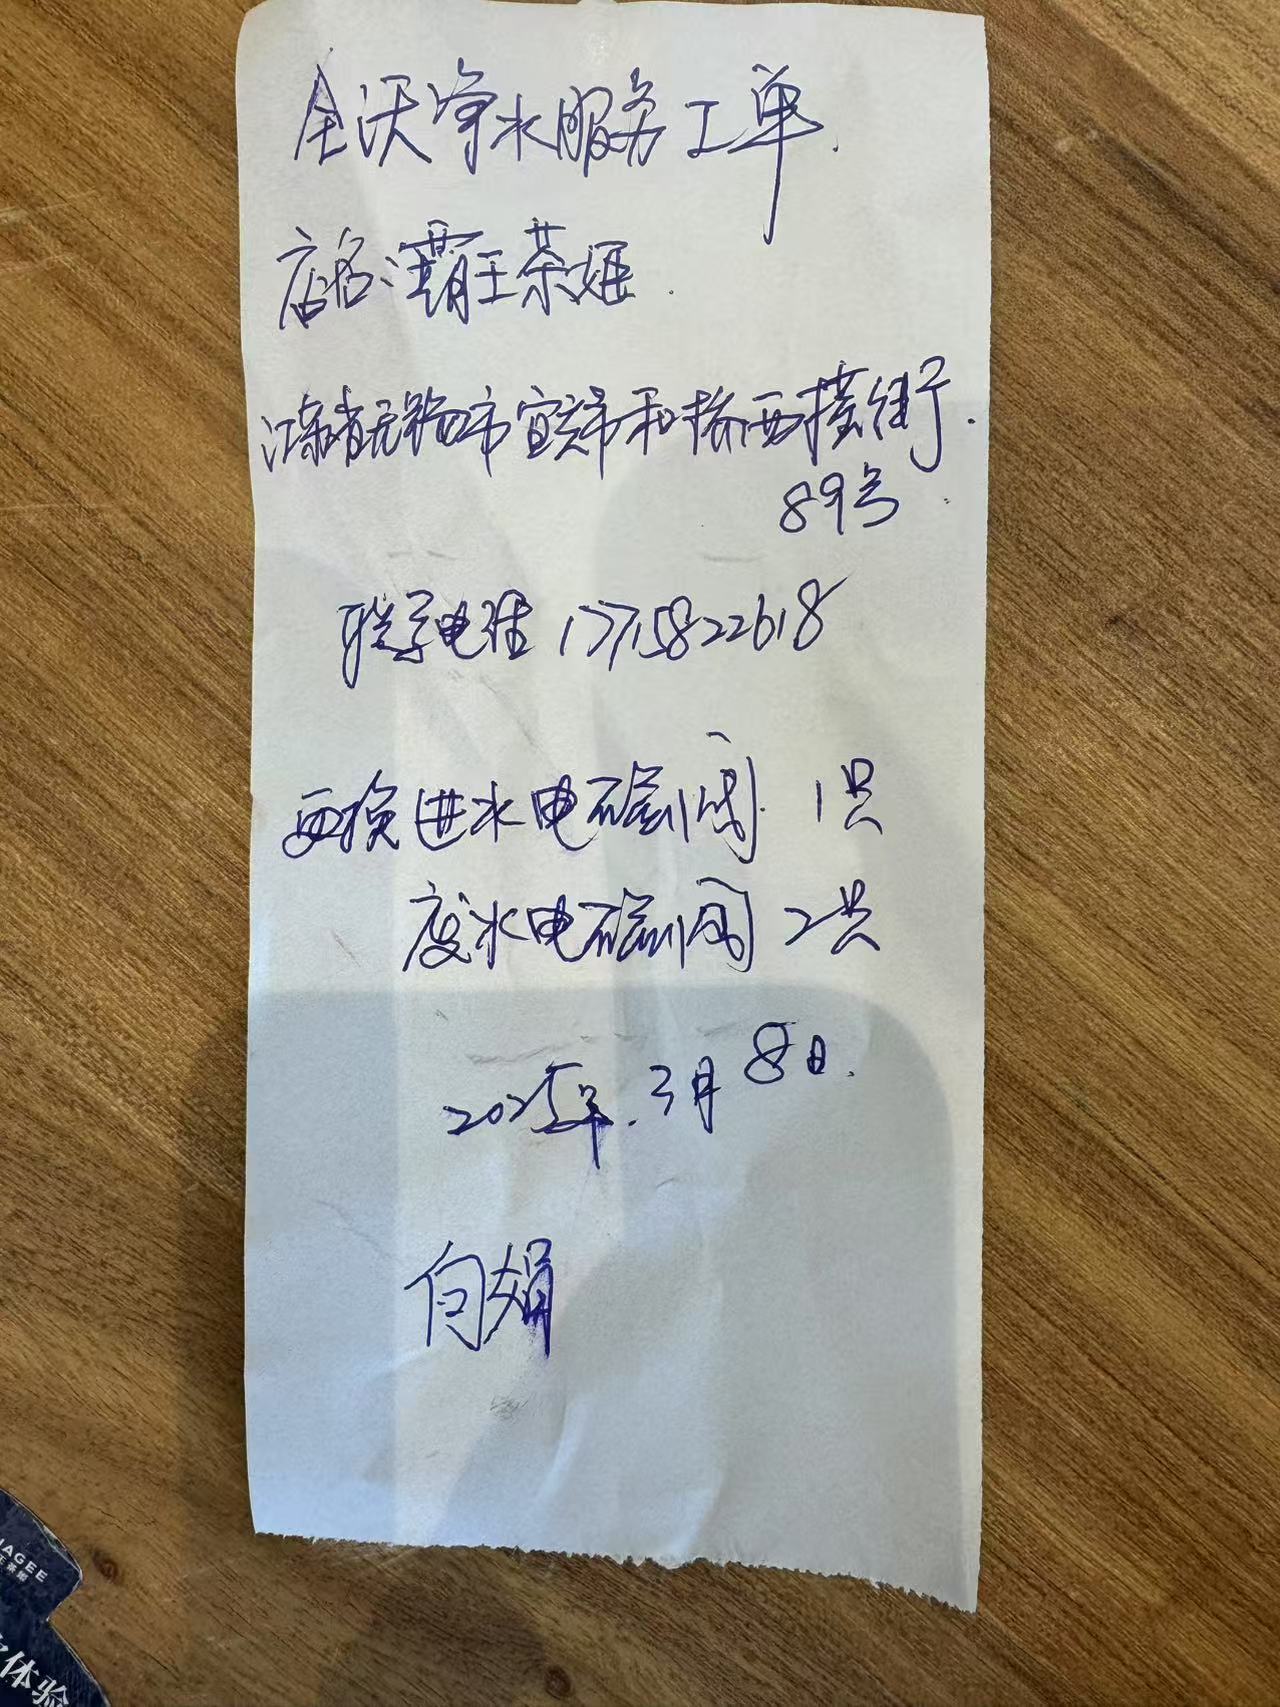 全沃净水服务工单.
店名:霸王茶姬.
江苏省无锡市宜兴市和桥西横街.
89号
联系电话 17715822618
更换进水电磁阀 1只
废水电磁阀 2只
2025年.3月8日.
向娟
AGEE
王茶姬
体验